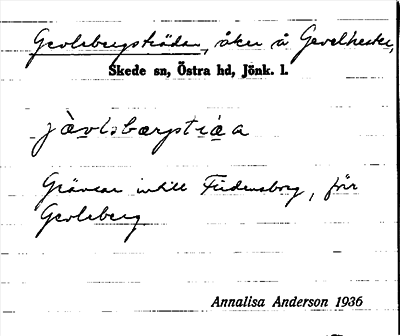 Gevlsbergsträdan, åker å Gevelhester,
Skede sn, Östra hd, Jönk. l.
jàvlsbærpstráa
Gränsar intill Fridensborg, förr
Gevlsberg
Annalisa Anderson 1936